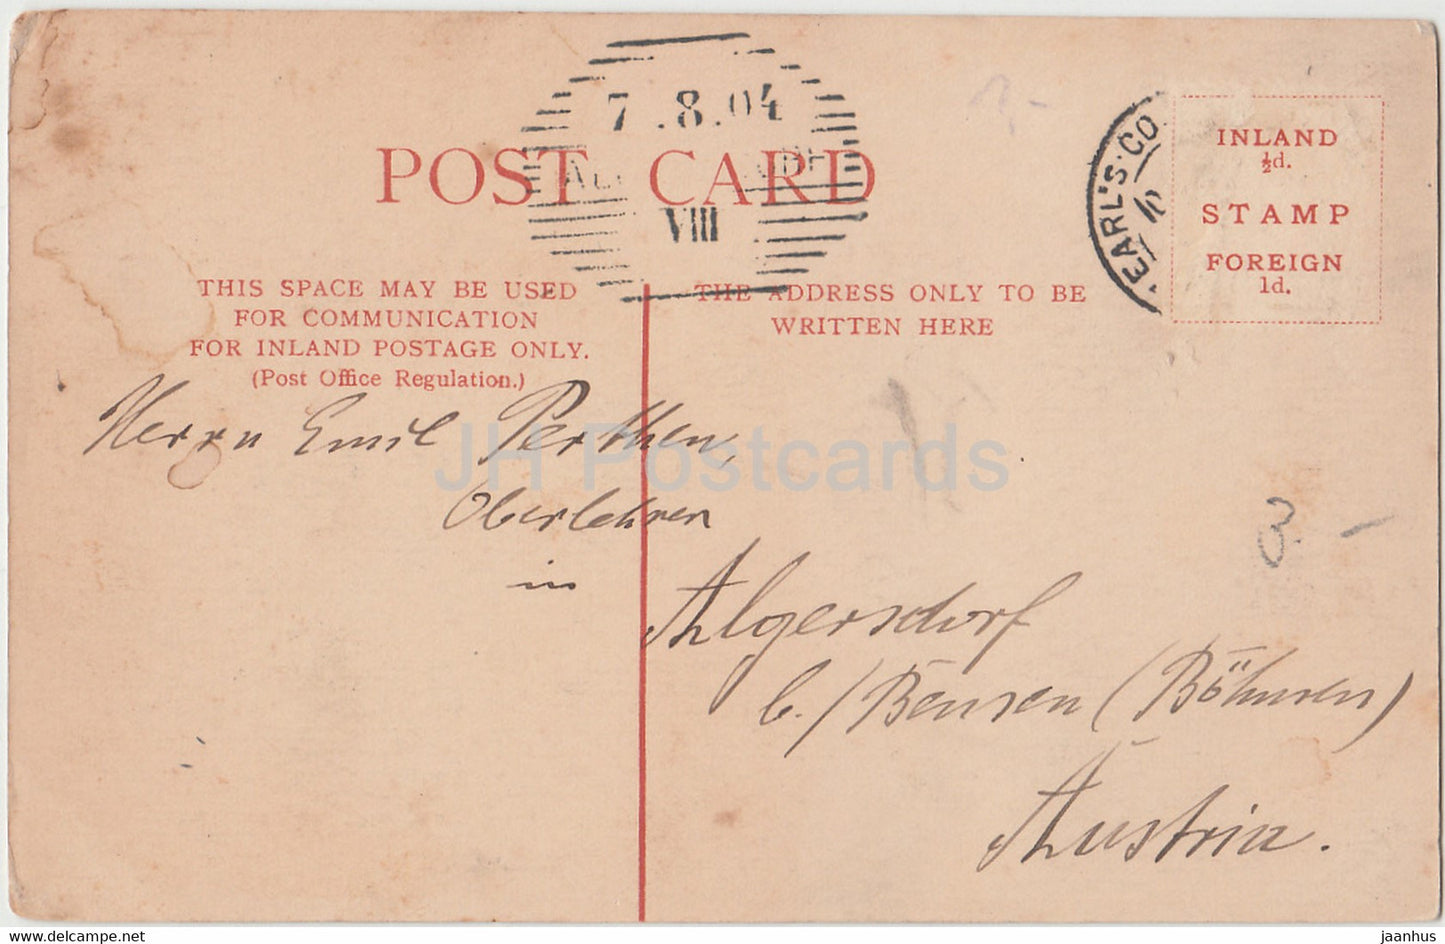 7.8.04
VIII
POST CARD
EARL'S CO
INLAND
½d.
STAMP
FOREIGN
1d.
THIS SPACE MAY BE USED
FOR COMMUNICATION
FOR INLAND POSTAGE ONLY.
(Post Office Regulation.)
THE ADDRESS ONLY TO BE
WRITTEN HERE
Herrn Emil Perthen,
Oberlehrer
in
Algersdorf
b./Bensen (Böhmen)
Austria.
3.-
JH Postcards
delcampe.net
jaanhus